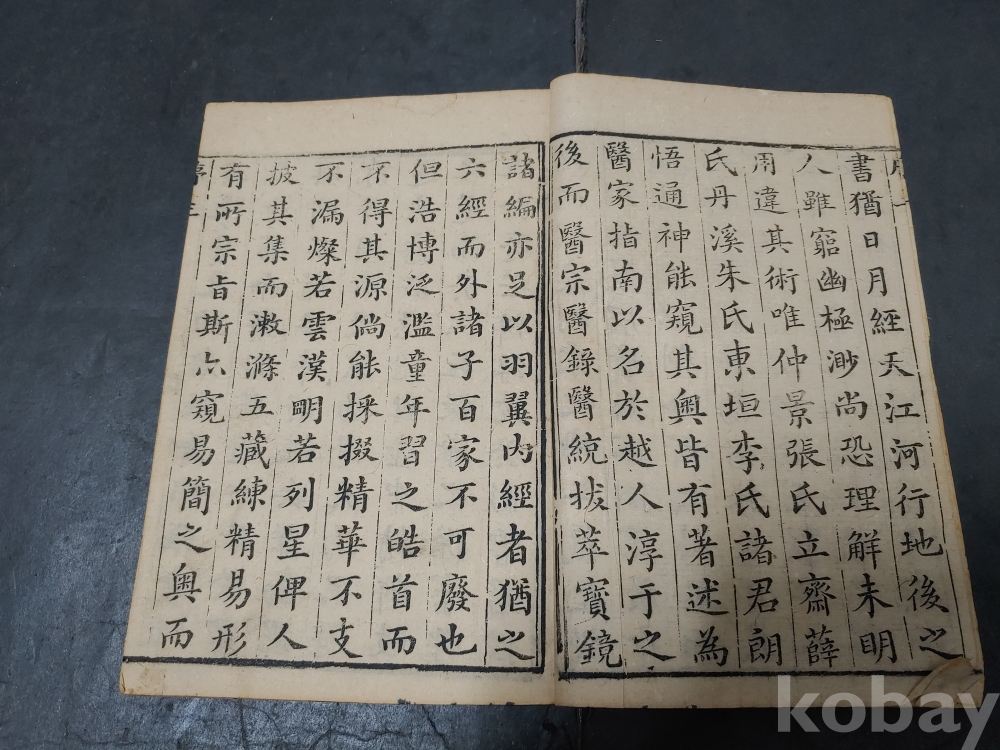 書猶日月經天江河行地後之
人雖窮幽極渺尚恐理解未明
用違其術唯仲景張氏立齋薛
氏丹溪朱氏東垣李氏諸君朗
悟通神能窺其奧皆有著述為
醫家指南以名於越人淳于之
後而醫宗醫錄醫統拔萃寶鏡
諸編亦足以羽翼内經者猶之
六經而外諸子百家不可廢也
但浩博泛濫童年習之皓首而
不得其源倘能採掇精華不支
不漏燦若雲漢明若列星俾人
披其集而漱滌五藏練精易形
有所宗旨斯亦窺易簡之奧而
kobay